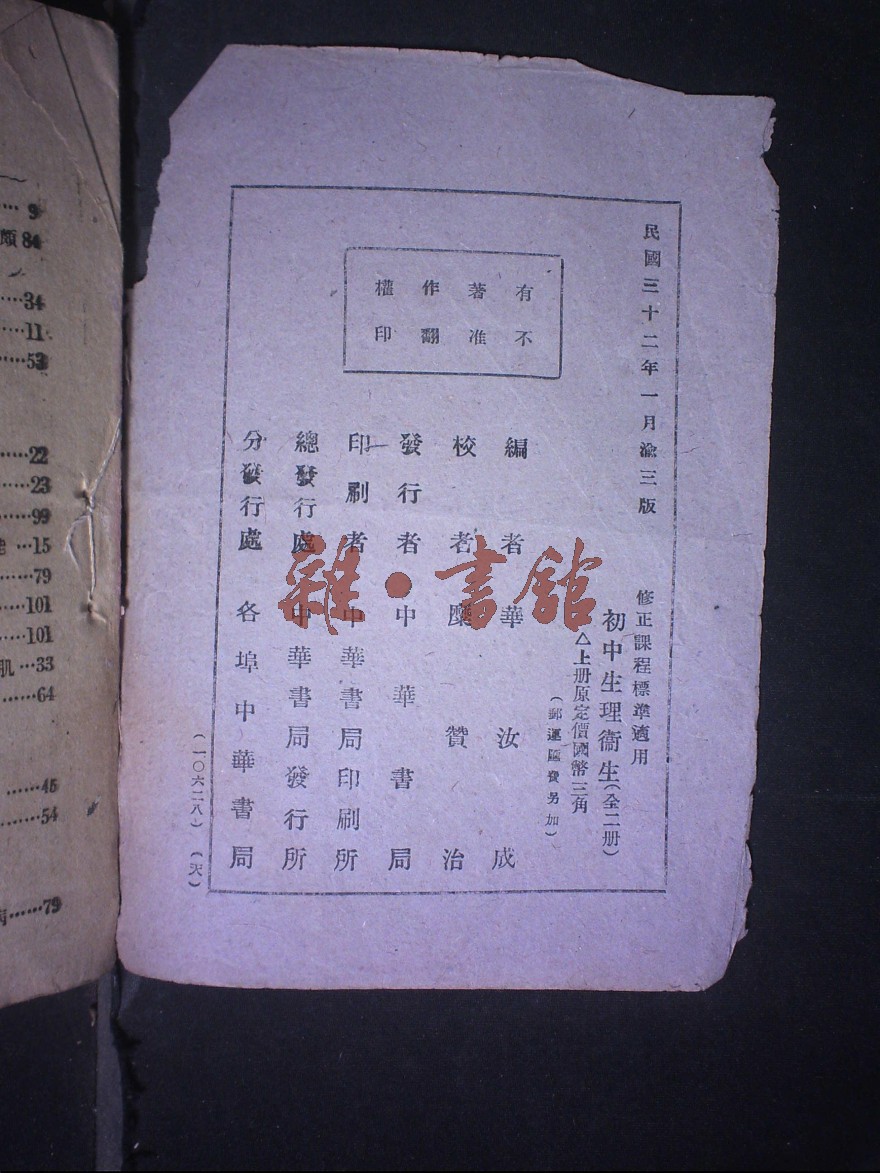 民國三十二年一月渝三版
修正課程標準適用
初中生理衞生(全二册)
△上册原定價國幣三角
(郵運匯費另加)
有著作權
不准翻印
編者 華汝成
校者 糜贊治
發行者 中華書局
印刷者 中華書局印刷所
總發行處 中華書局發行所
分發行處 各埠中華書局
(一〇六二八)(天)
雜·書館
9
84
34
11
53
22
23
99
15
79
101
101
肌…33
64
45
54
79